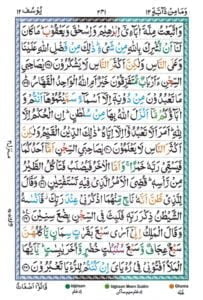 وَمَا مِنْ دَآبَّةٍ ١٢
٢٣١
يُوسُف ١٢
وَاتَّبَعْتُ مِلَّةَ اٰبَآءِيْۤ اِبْرٰهِيْمَ وَاِسْحٰقَ وَيَعْقُوْبَ ؕ مَا كَانَ
لَنَاۤ اَنْ نُّشْرِكَ بِاللّٰهِ مِنْ شَيْءٍ ؕ ذٰلِكَ مِنْ فَضْلِ اللّٰهِ عَلَيْنَا
وَعَلَى النَّاسِ وَلٰكِنَّ اَكْثَرَ النَّاسِ لَا يَشْكُرُوْنَ يٰصَاحِبَيِ
السِّجْنِ ءَاَرْبَابٌ مُّتَفَرِّقُوْنَ خَيْرٌ اَمِ اللّٰهُ الْوَاحِدُ الْقَهَّارُ
مَا تَعْبُدُوْنَ مِنْ دُوْنِهٖۤ اِلَّاۤ اَسْمَآءً سَمَّيْتُمُوْهَاۤ اَنْتُمْ
وَاٰبَآؤُكُمْ مَّاۤ اَنْزَلَ اللّٰهُ بِهَا مِنْ سُلْطٰنٍ ؕ اِنِ الْحُكْمُ اِلَّا لِلّٰهِ ؕ
اَمَرَ اَلَّا تَعْبُدُوْۤا اِلَّاۤ اِيَّاهُ ؕ ذٰلِكَ الدِّيْنُ الْقَيِّمُ وَلٰكِنَّ
اَكْثَرَ النَّاسِ لَا يَعْلَمُوْنَ يٰصَاحِبَيِ السِّجْنِ اَمَّاۤ اَحَدُكُمَا
فَيَسْقِيْ رَبَّهٗ خَمْرًا ۚ وَاَمَّا الْاٰخَرُ فَيُصْلَبُ فَتَاْكُلُ الطَّيْرُ
مِنْ رَّاْسِهٖ ؕ قُضِيَ الْاَمْرُ الَّذِيْ فِيْهِ تَسْتَفْتِيٰنِ وَقَالَ لِلَّذِيْ
ظَنَّ اَنَّهٗ نَاجٍ مِّنْهُمَا اذْكُرْنِيْ عِنْدَ رَبِّكَ ؗ فَاَنْسٰهُ
الشَّيْطٰنُ ذِكْرَ رَبِّهٖ فَلَبِثَ فِي السِّجْنِ بِضْعَ سِنِيْنَ
وَقَالَ الْمَلِكُ اِنِّيْۤ اَرٰى سَبْعَ بَقَرٰتٍ سِمَانٍ يَّاْكُلُهُنَّ
سَبْعٌ عِجَافٌ وَّسَبْعَ سُنْۢبُلٰتٍ خُضْرٍ وَّاُخَرَ يٰبِسٰتٍ ؕ يٰۤاَيُّهَا
الْمَلَاُ اَفْتُوْنِيْ فِيْ رُءْيَايَ اِنْ كُنْتُمْ لِلرُّءْيَا تَعْبُرُوْنَ
قَالُوْۤا اَضْغَاثُ